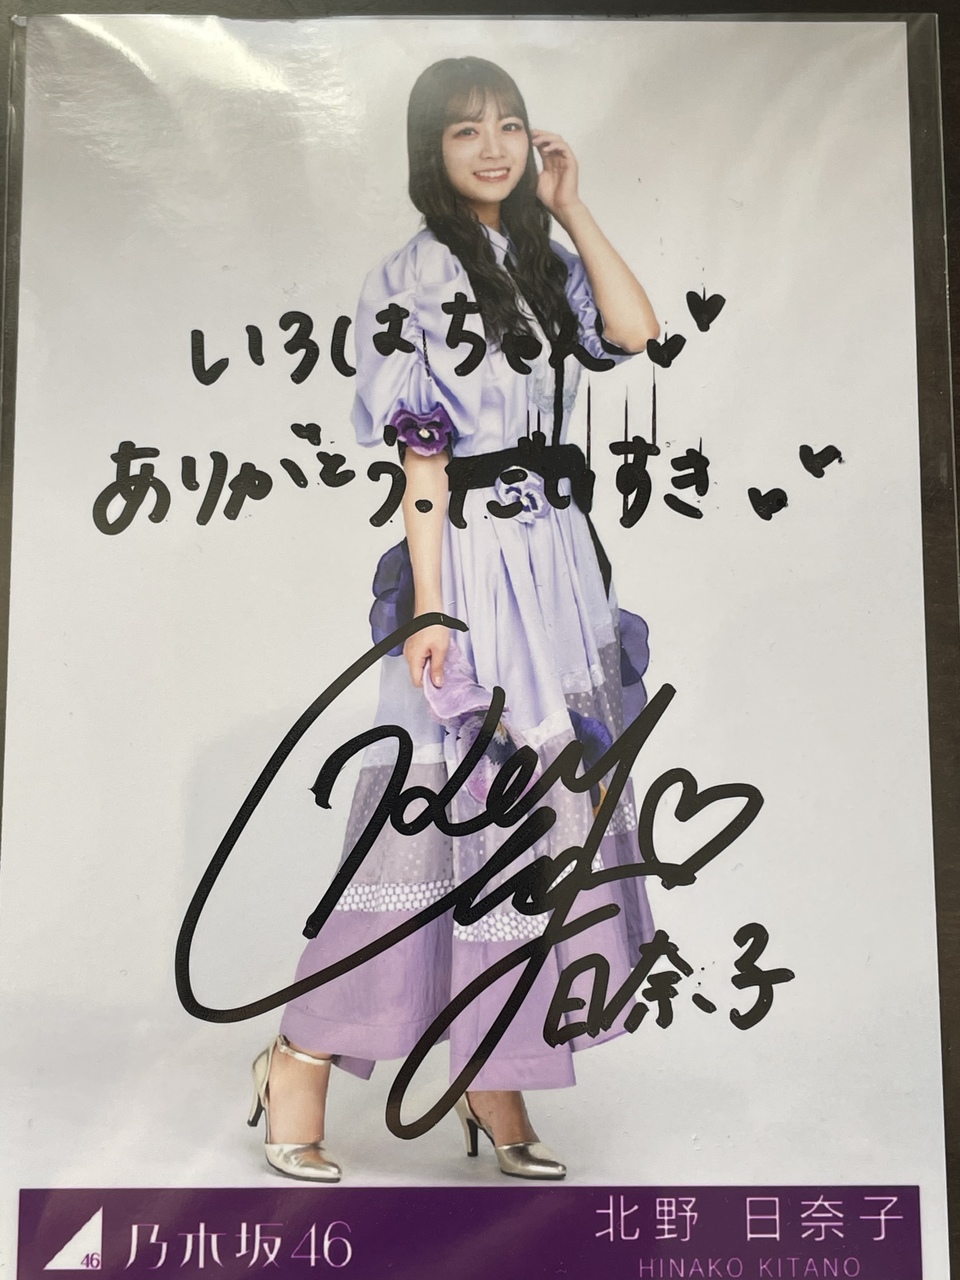 いろはちゃん
ありがとう.だいすき
日奈子
46
乃木坂46
北野 日奈子
HINAKO KITANO